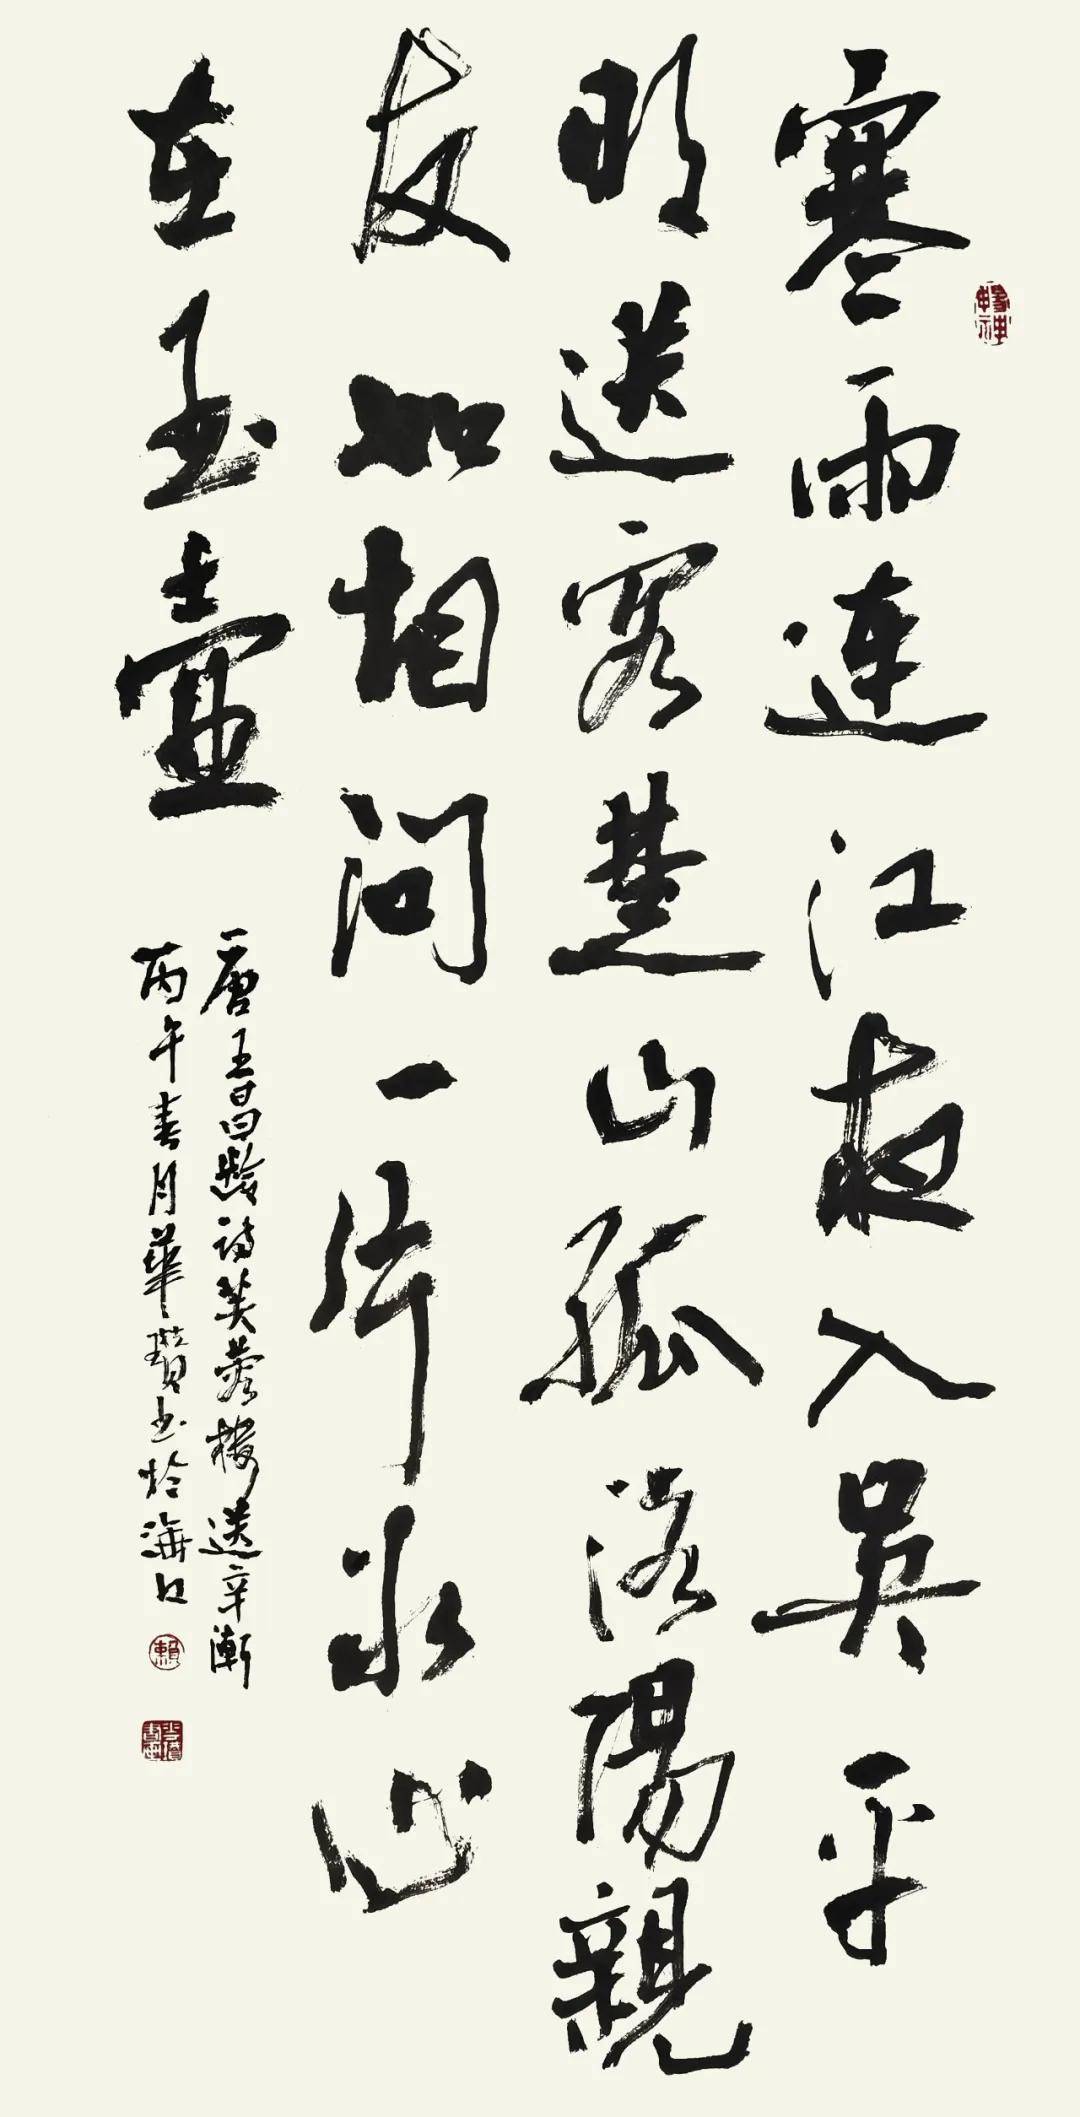 寒雨連江夜入吳平
明送客楚山孤洛陽親
友如相问一片冰心
在玉壺
唐王昌齡诗芙蓉楼送辛漸
丙午春月華瓚书於海口
賴